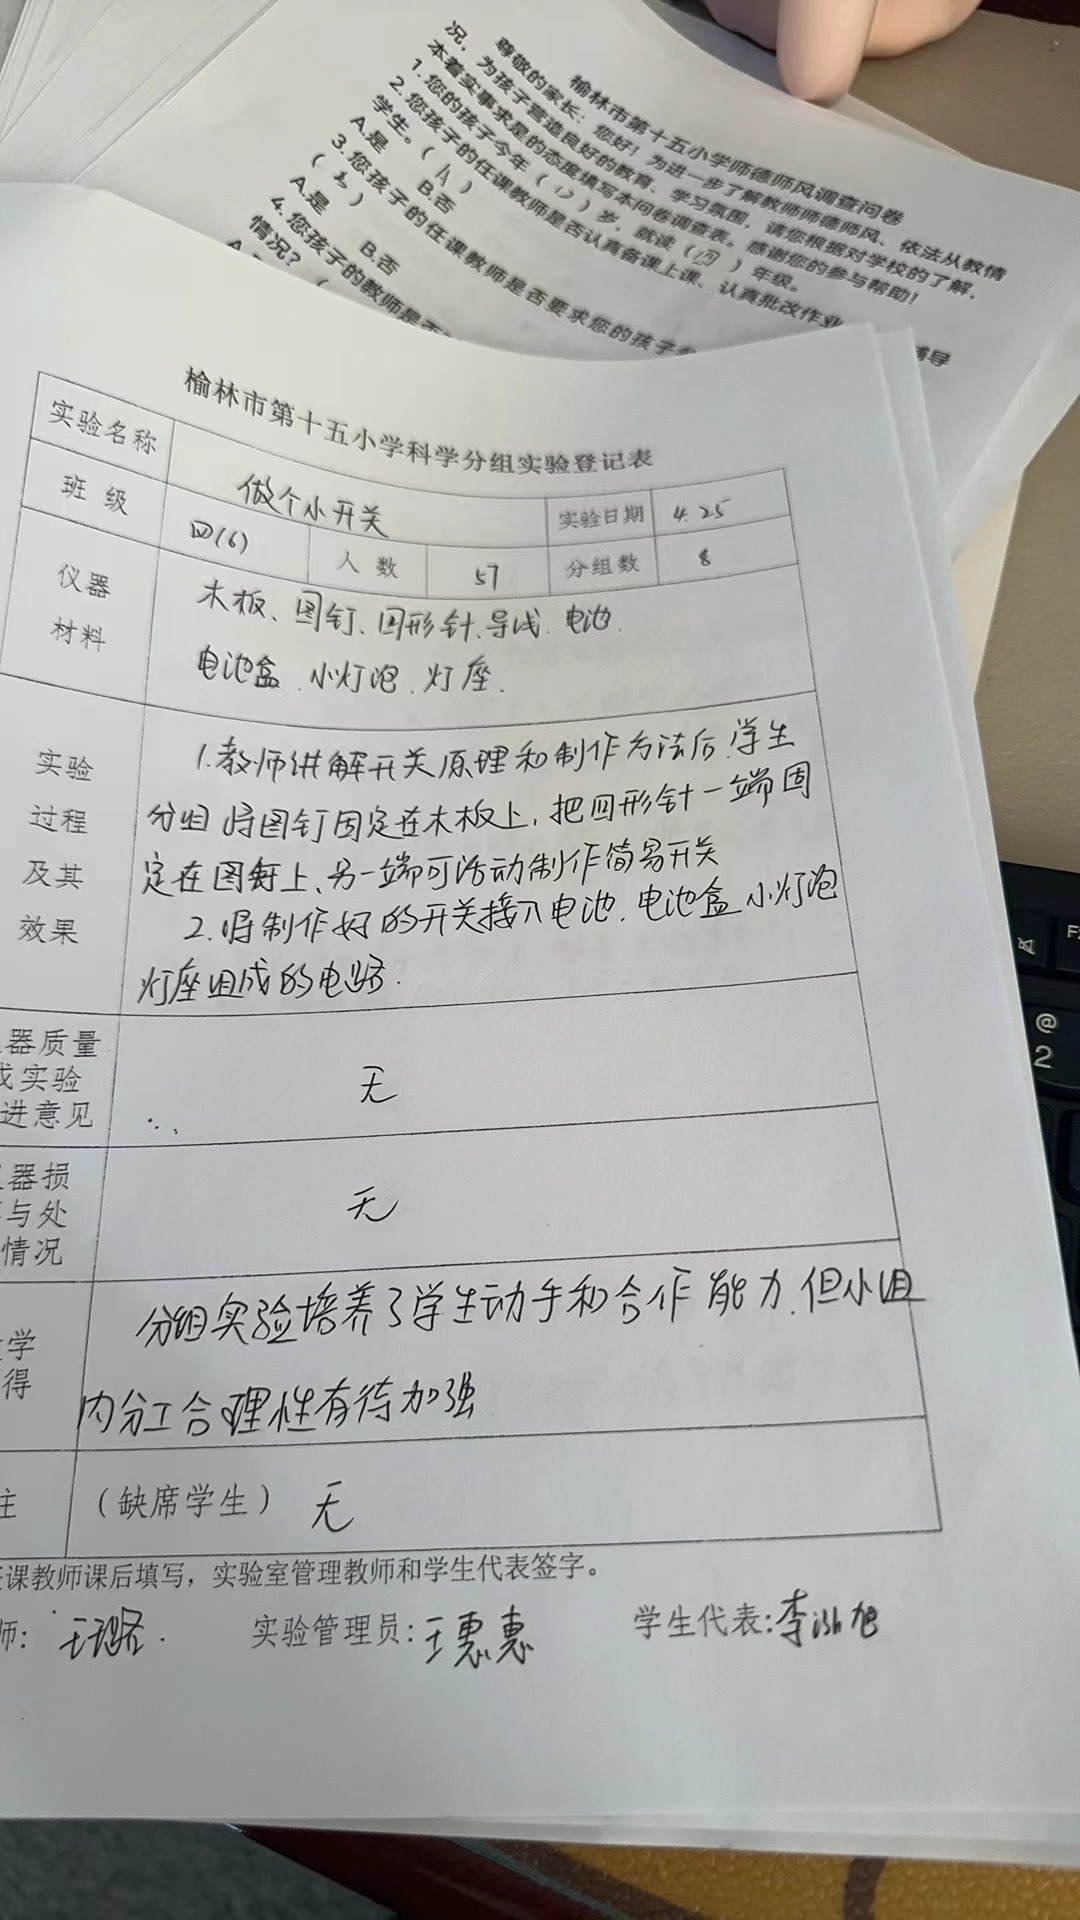 榆林市第十五小学师德师风调查问卷
尊敬的家长：您好！为进一步了解教师师德师风、依法从教情
况，为孩子营造良好的教育、学习氛围，请您根据对学校的了解，
本着实事求是的态度填写本问卷调查表。感谢您的参与帮助！
1.您的孩子今年（）岁，就读（四）年级。
2.您孩子的任课教师是否认真备课上课、认真批改作业 辅导
学生。（A）
A.是 B.否
3.您孩子的任课教师是否要求您的孩子
（）
A.是 B.否
4.您孩子的教师是否
情况？（
榆林市第十五小学科学分组实验登记表
实验名称 做个小开关 实验日期 4.25
班 级 四(6) 人 数 57 分组数 8
仪器 木板、图钉、回形针、导线、电池.
材料 电池盒、小灯泡、灯座.
实验 1.教师讲解开关原理和制作方法后,学生
过程 分组将图钉固定在木板上,把回形针一端固
及其 定在图钉上、另一端可活动制作简易开关
效果 2.将制作好的开关接入电池、电池盒、小灯泡
灯座组成的电路.
器质量
实验 无
进意见
器损
与处 无
情况
分组实验培养了学生动手和合作能力、但小组
学
得 内分工合理性有待加强
注 （缺席学生） 无
课教师课后填写，实验室管理教师和学生代表签字。
师: 王璐. 实验管理员:王惠惠 学生代表:李 旭